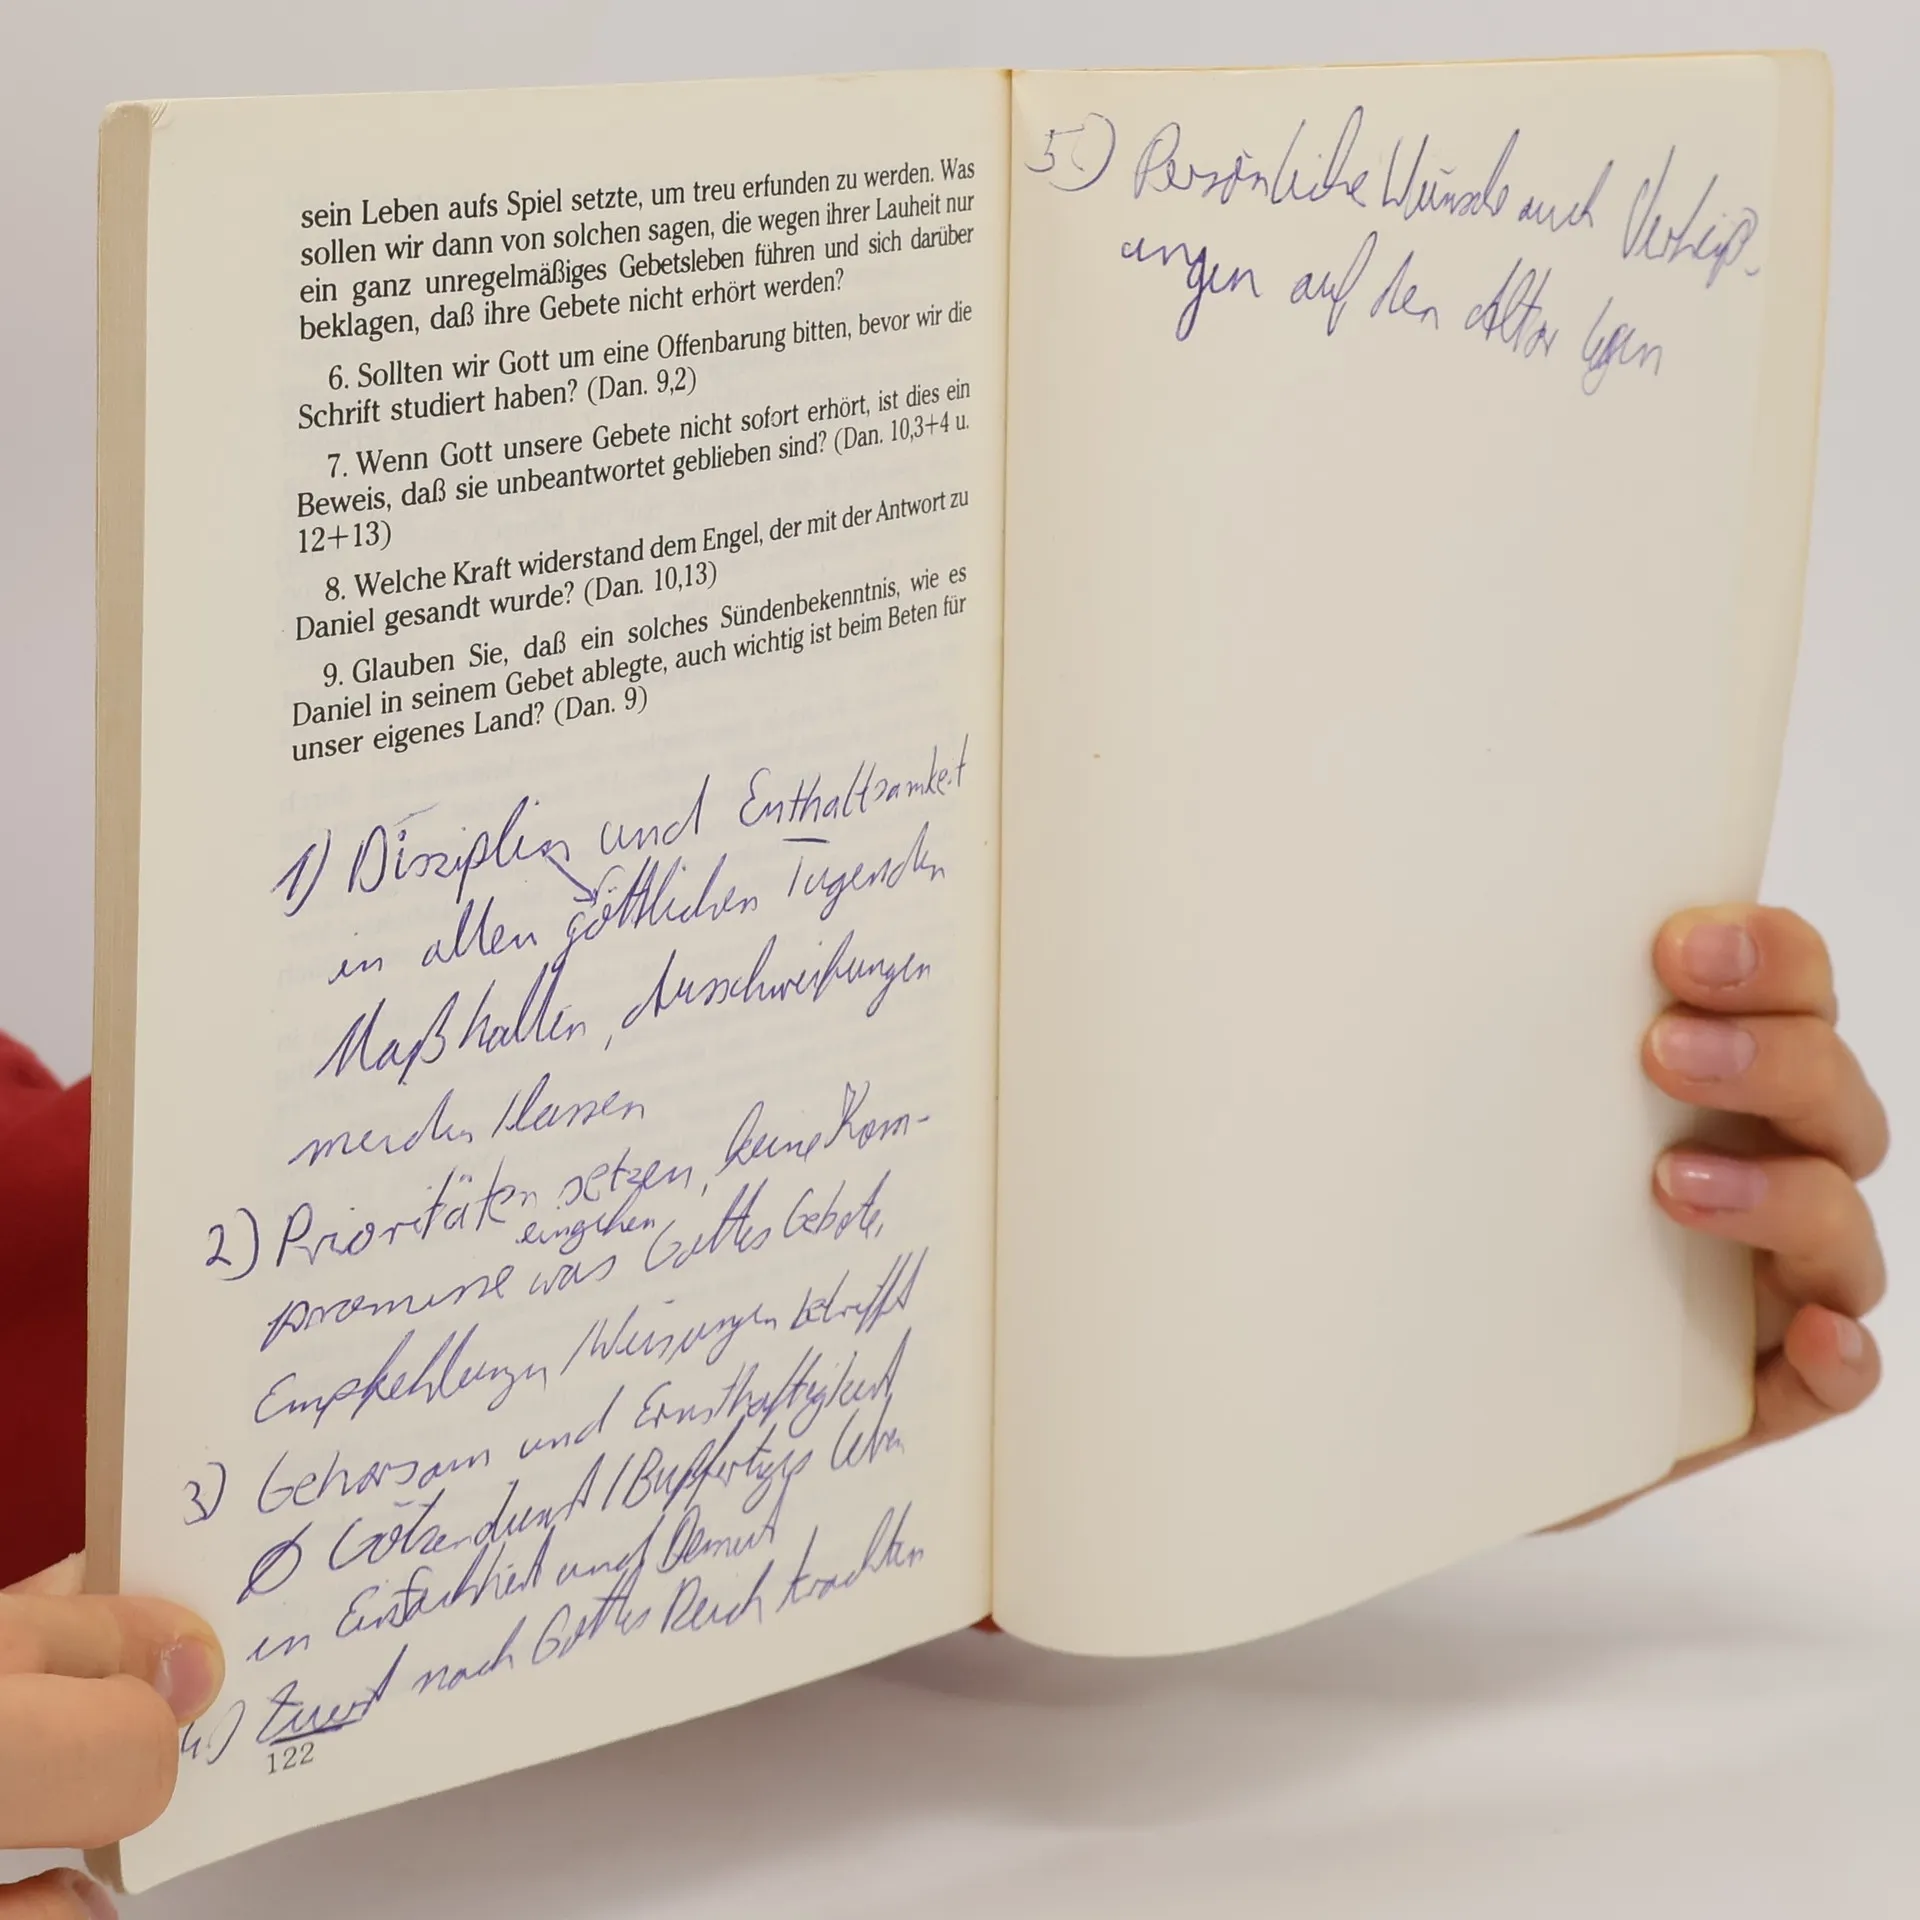 sein Leben aufs Spiel setzte, um treu erfunden zu werden. Was
sollen wir dann von solchen sagen, die wegen ihrer Lauheit nur
ein ganz unregelmäßiges Gebetsleben führen und sich darüber
beklagen, daß ihre Gebete nicht erhört werden?
6. Sollten wir Gott um eine Offenbarung bitten, bevor wir die
Schrift studiert haben? (Dan. 9,2)
7. Wenn Gott unsere Gebete nicht sofort erhört, ist dies ein
Beweis, daß sie unbeantwortet geblieben sind? (Dan. 10,3+4 u.
12+13)
8. Welche Kraft widerstand dem Engel, der mit der Antwort zu
Daniel gesandt wurde? (Dan. 10,13)
9. Glauben Sie, daß ein solches Sündenbekenntnis, wie es
Daniel in seinem Gebet ablegte, auch wichtig ist beim Beten für
unser eigenes Land? (Dan. 9)
1) Disziplin und Enthaltsamkeit
in allen göttlichen Tugenden
Maß halten, Ausschweifungen
meiden /lassen
2) Prioritäten setzen, keine Kom-
eingehen
promisse was Gottes Gebote,
Empfehlungen /Weisungen betrifft
3) Gehorsam und Ernsthaftigkeit
Ø Götzendienst / Bußfertiges Leben
in Einfachheit und Demut
4.) Zuerst nach Gottes Reich trachten
122
5.) Persönliche Wünsche auch Verheiß-
ungen auf den Altar legen